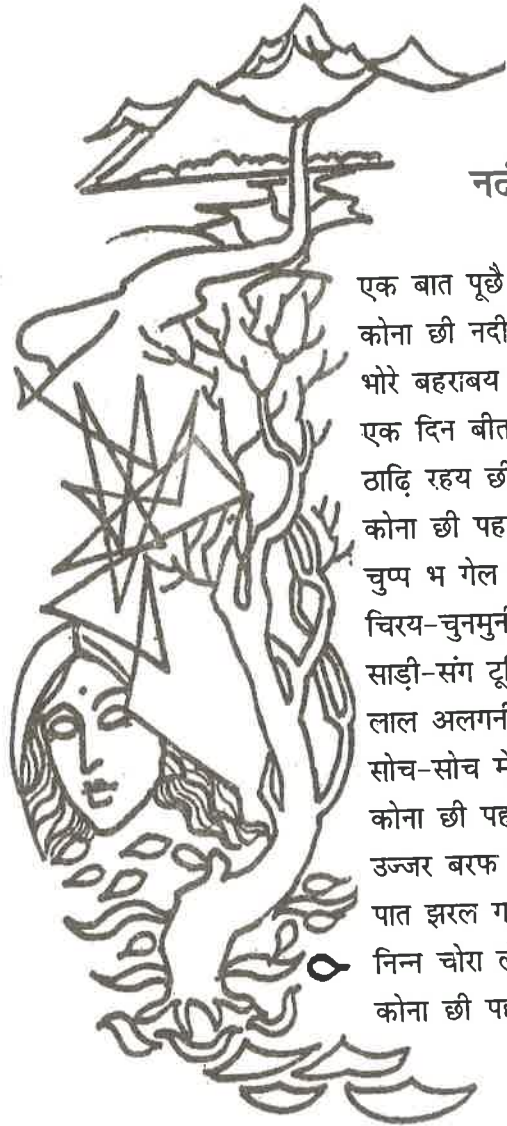 एक बात पूछै
कोना छी नदी
भोरे बहराबय
एक दिन बीत
ठाढ़ि रहय छी
कोना छी पह
चुप्प भ गेल
चिरय-चुनमुनी
साड़ी-संग टूि
लाल अलगनी
सोच-सोच मे
कोना छी पह
उज्जर बरफ
पात झरल ग
निन्न चोरा ल
कोना छी पह